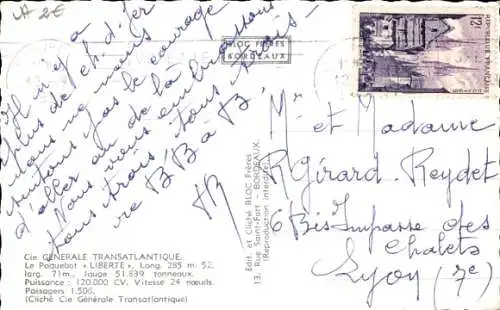 A 2€
Il n'y a
plus de ch. d. fer
nous ne nous
sentons pas le courage
d'aller au de là
Nous vous embrassons
tous trois
BLOC FRÈRES
BORDEAUX
12F
Mr et Madame
R. Girard-Reydet
6 Bis Impasse des
Chalets
Lyon (7e)
Edit. et Cliché BLOC Frères
13, Rue Saint-Fort - BORDEAUX
(Reproduction interdite)
Cie GENERALE TRANSATLANTIQUE.
Le Paquebot « LIBERTE », Long. 285 m. 52,
larg. 71m., Jauge 51.839 tonneaux.
Puissance : 120.000 CV. Vitesse 24 nœuds.
Passagers 1.500.
(Cliché Cie Générale Transatlantique)